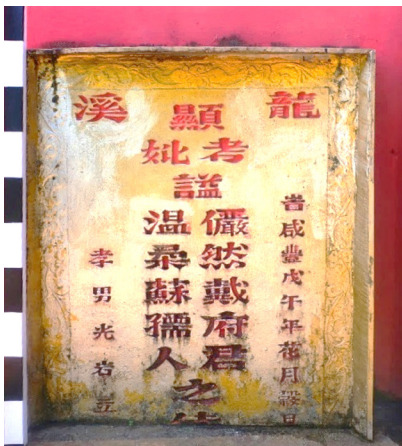 龍溪
旹咸豐戊午年花月穀日
顯
考妣
謚
儼然戴府君
温柔蘇孺人
之
孝男光岩立